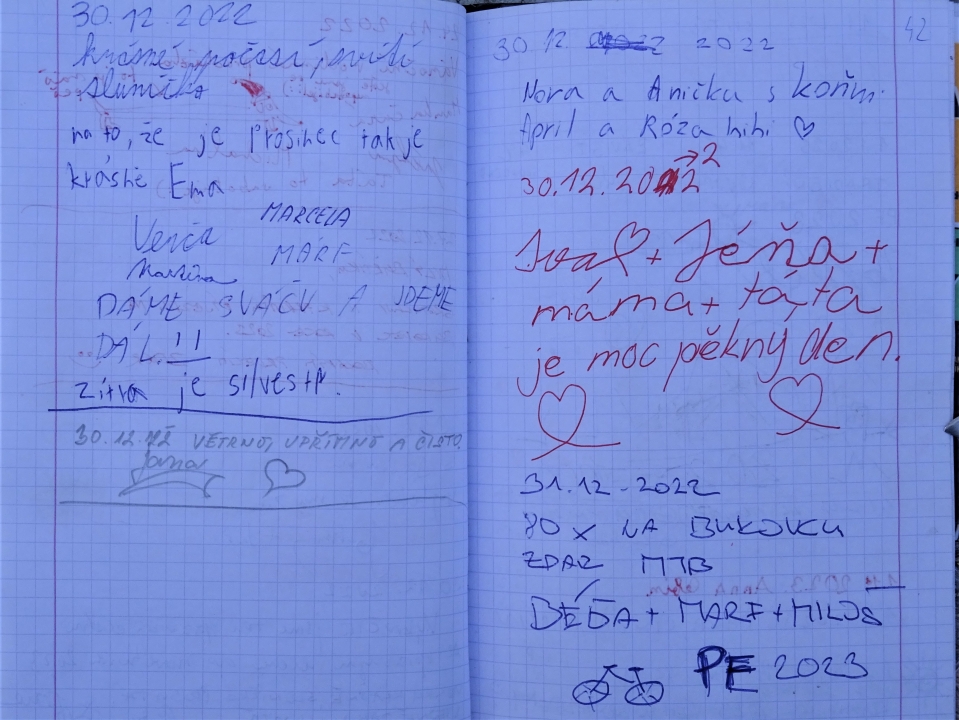 30.12.2022
krásné počasí, svítí
sluníčko
na to, že je Prosinec tak je
krásně Ema
MARCELA
Verča MÁRF
Martina
DÁME SVAČU A JDEME
DÁL !!
zítra je silvestr.
30.12.22 VĚTRNO, UPŘÍMNO A ČISTO.
Jana
42
30.12. 2022
Nora a Anička s koňm.
April a Róza hihi ♡
30.12.2022
Iva ♡ + Jéňa +
máma + táta
je moc pěkný den.
31.12.2022
80 x NA BUKOVKU
ZDAR MTB
BÉĎA + MARF + MILOŠ
PF 2023